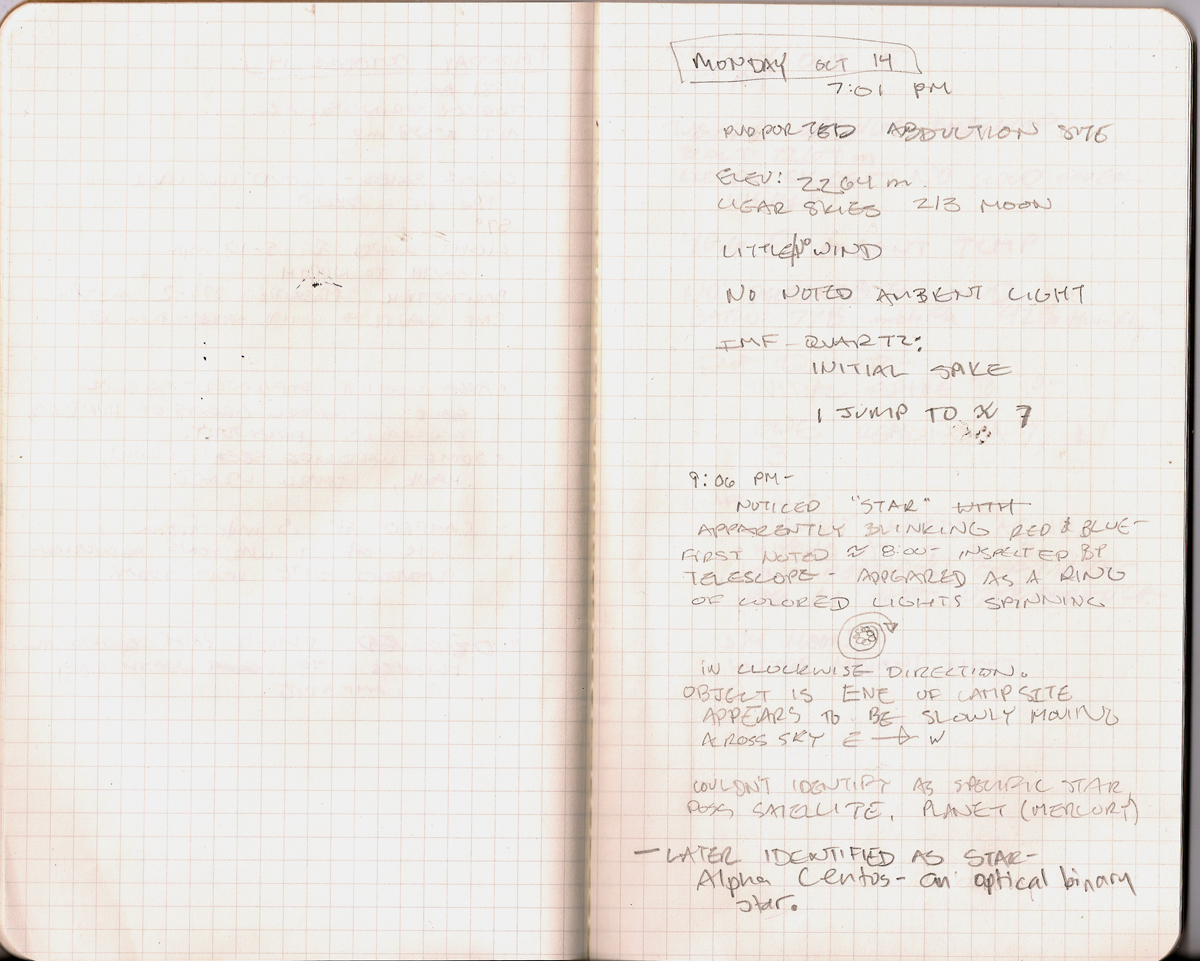 MONDAY OCT 14
7:01 PM
PURPORTED ABDUCTION SITE
ELEV: 2264 m.
CLEAR SKIES 2/3 MOON
LITTLE/NO WIND
NO NOTED AMBIENT LIGHT
EMF-QUARTZ:
INITIAL SPIKE
1 JUMP TO ≈ 7
9:06 PM-
NOTICED "STAR" WITH
APPARENTLY BLINKING RED & BLUE-
FIRST NOTED ≈ 8:00- INSPECTED BY
TELESCOPE- APPEARED AS A RING
OF COLORED LIGHTS SPINNING
IN CLOCKWISE DIRECTION.
OBJECT IS ENE OF CAMPSITE
APPEARS TO BE SLOWLY MOVING
ACROSS SKY E → W
COULDN'T IDENTIFY AS SPECIFIC STAR,
POSS SATELLITE, PLANET (MERCURY)
— LATER IDENTIFIED AS STAR-
Alpha Centos- an optical binary
star.